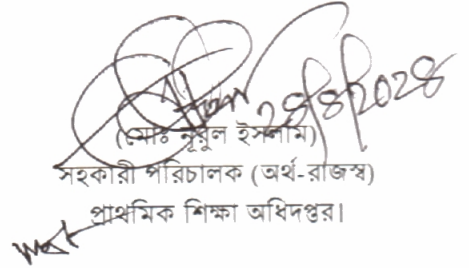 ২৪/৪/২০২৪
(মোঃ নূরুল ইসলাম)
সহকারী পরিচালক (অর্থ-রাজস্ব)
প্রাথমিক শিক্ষা অধিদপ্তর।